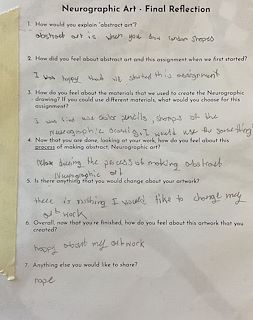 Neurographic Art - Final Reflection
1. How would you explain "abstract art"?
abstract art is when you draw random shapes
2. How did you feel about abstract art and this assignment when we first started?
I was happy that we started this assignment
3. How do you feel about the materials that we used to create the Neurographic
drawing? If you could use different materials, what would you choose for this
assignment?
I was kind use color pencils, sharps of the
neurographic drawing. I would use try something
4. Now that you are done, looking at your work, how do you feel about this
process of making abstract, Neurographic art?
relax during the process of making abstract
Neurographic art
5. Is there anything that you would change about your artwork?
there is nothing I would like to change my
art work
6. Overall, now that you're finished, how do you feel about this artwork that you
created?
happy about my art work
7. Anything else you would like to share?
nope